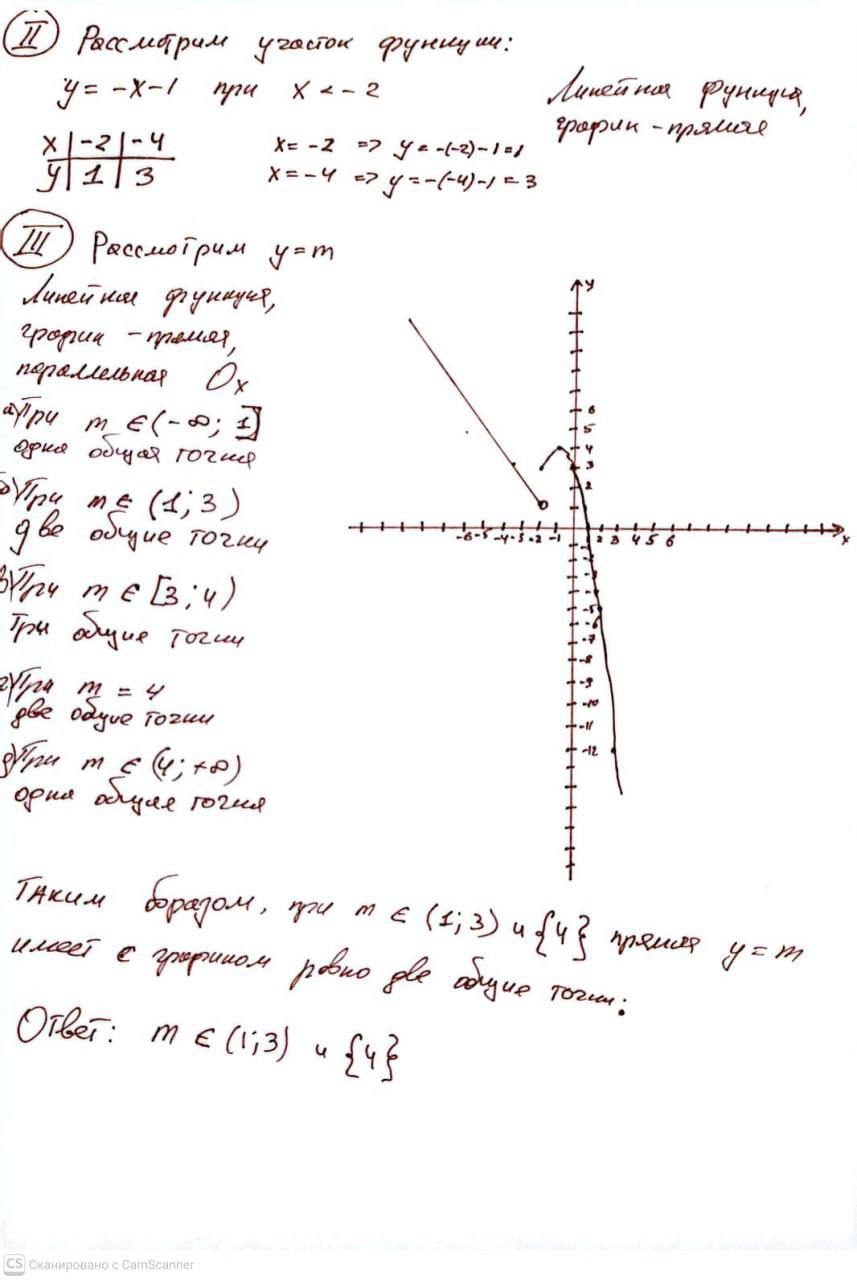 II Рассмотрим участок функции:
y = -x-1 при x < -2
Линейная функция,
график - прямая
x | -2 | -4
y | 1 | 3
x = -2 => y = -(-2)-1=1
x = -4 => y = -(-4)-1 = 3
III Рассмотрим y=m
Линейная функция,
график - прямая,
параллельная Ox
а) При m ∈ (-∞; 1]
одна общая точка
б) При m ∈ (1; 3)
две общие точки
в) При m ∈ [3; 4)
три общие точки
г) При m = 4
две общие точки
д) При m ∈ (4; +∞)
одна общая точка
y
6
5
4
3
2
-6 -5 -4 -3 -2 -1 2 3 4 5 6 x
-5
-6
-7
-8
-9
-10
-11
-12
Таким боразом, при m ∈ (1; 3) и {4} прямая y = m
имеет с графиком ровно две общие точки:
Ответ: m ∈ (1; 3) и {4}
CS Сканировано с CamScanner